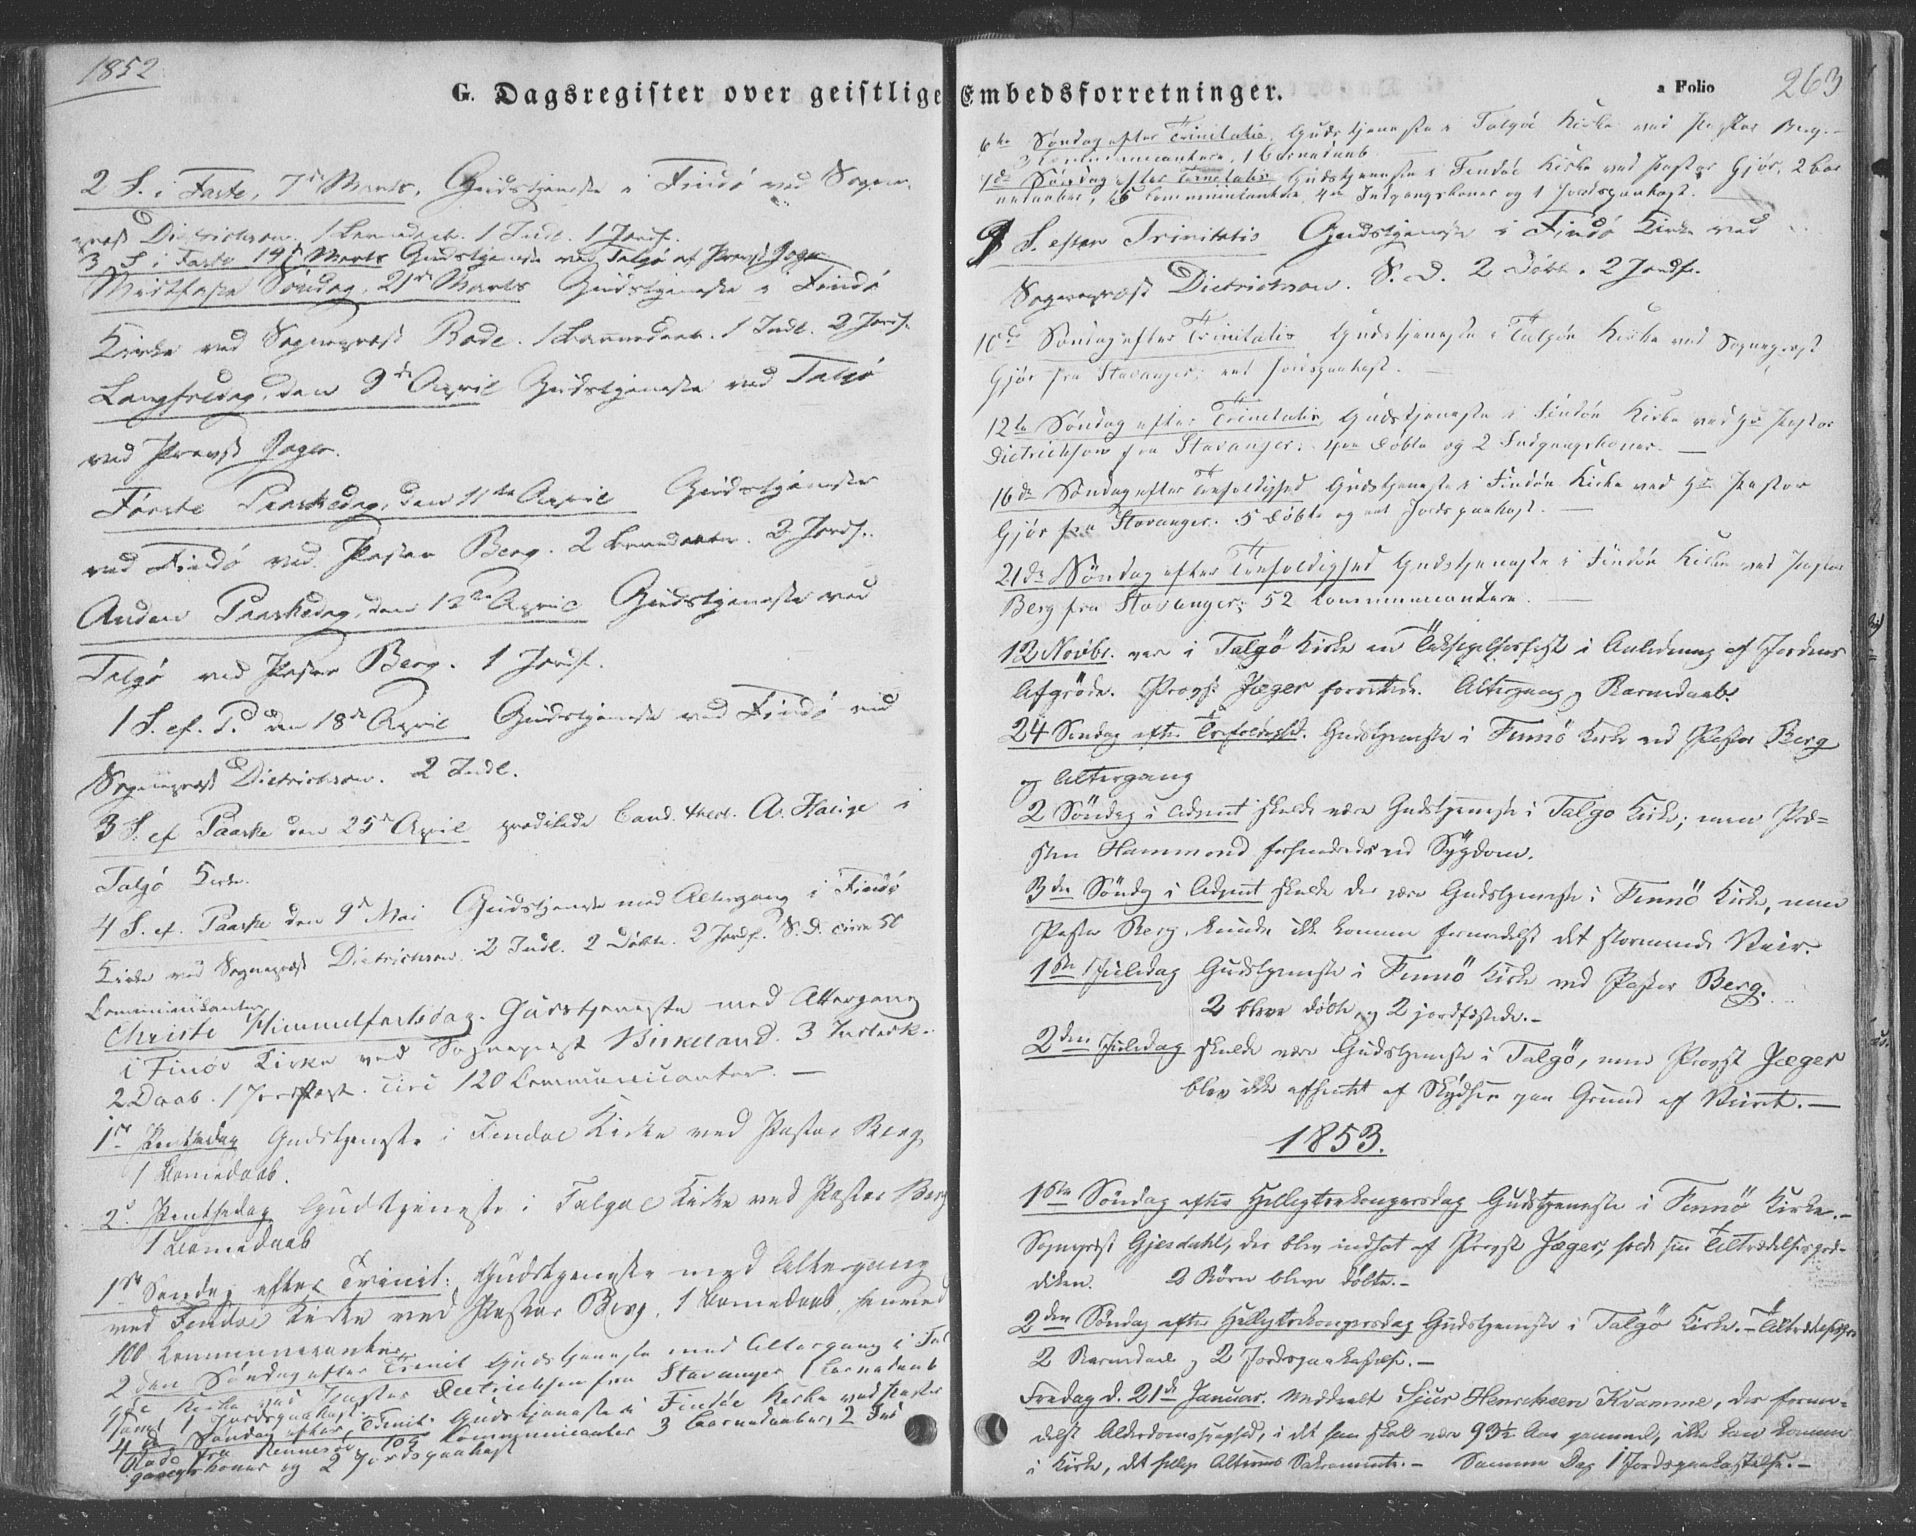 1852
G. Dagsregister over geistlige
2 S. i Faste, 7de Marts, Gudstjeneste i Findö ved Sogne-
præst Dietrichson. 1 Barnedaab. 1 Indl. 1 Jordf.
3 S. i Faste 14de Marts Gudstjeneste ved Talgö af Provst Jæger
Midtfaste Söndag, 21de Marts Gudstjeneste i Findö
Kirke ved Sognepræst Rode. 1 Barnedaab. 1 Indl. 2 Jordf.
Langfredag, den 9de April Gudstjeneste ved Talgö
ved Provst Jæger.
Förste Paaskedag, den 11te April Gudstjeneste
ved Findö ved Pastor Berg. 2 Barnedaab. 2 Jordf.
Anden Paaskedag, den 12te April Gudstjeneste ved
Talgö ved Pastor Berg. 1 Jordf.
1 S. ef. P. den 18de April Gudstjeneste ved Findö ved
Sognepræst Dietrichson. 2 Indl.
3 S. ef. Paaske den 25de April prædikede Cand. theol. A. Hauge i
Talgö Kirke.
4 S. ef. Paaske den 9de Mai Gudstjeneste med Altergang i Findö
Kirke ved Sognepræst Dietrichson. 2 Indl. 2 Döbte. 2 Jordf. S. D. circa 50
Communikanter
Christi Himmelfartsdag. Gudstjeneste med Altergang
i Finöe Kirke ved Sognepræst Birkeland. 3 Introd.
2 Daab. 1 Jordfæst. circ 120 Communicanter. —
1ste Pentsedag Gudstjeneste i Findöe Kirke ved Pastor Berg
1 Barnedaab.
2d Pentsedag Gudstjeneste i Talgöe Kirke ved Pastor Berg
1 Barnedaab
1ste Söndag efter Trinit: Gudstjeneste med Altergang
ved Findöe Kirke ved Pastor Berg, 1 Barnedaab,
100 Kommunicanter
2den Söndag efter Trinit Gudstjeneste med Altergang i Tal
göe Kirke ved Pastor Dietrichson fra Stavanger 1 Barnedaab
samt 1 Jordspaakast.
4de Söndag efter Trinit. Gudstjeneste i Findöe Kirke ved Pastor
Rode fra Rennesöe, 103 Kommunicanter 3 Barnedaaber, 2 Ind
gangskoner og 2 Jordspaakast
Embedsforretninger.
a Folio
263
6te Söndag efter Trinitatis, Gudstjeneste i Talgöe Kirke ved Pastor Berg.—
Communicantere, 1 Barnedaab
7de Söndag efter Trinitatis Gudstjeneste i Findöe Kirke ved Pastor Gjör, 2 Bar
nedaaber, Communicantere, 4re Indgangskoner og 1 Jordspaakast.
9 S. efter Trinitatis Gudstjeneste i Findö Kirke ved
Sognepræst Dietrichson. S. D. 2 Döbte. 2 Jordf.
10de Söndag efter Trinitatis Gudstjeneste i Talgöe Kirke ved Sognepræst
Gjör fra Stavanger; eet Jordspaakast. —
12te Söndag efter Trinitatis, Gudstjeneste i Findöe Kirke ved Hr Pastor
Dietrichson fra Stavanger; 4re Döbte og 2 Indgangskoner. —
16de Söndag efter Trefoldighed Gudstjeneste i Findöe Kirke ved Hr Pastor
Gjör fra Stavanger. 5 Döbte og eet Jordspaakast. —
21de Söndag efter Trefoldighed Gudstjeneste i Findöe Kirke ved Pastor
Berg fra Stavanger; 52 Communicantere. —
12 Novbr. var i Talgö Kirke en Taksigelsesfest i Anledning af Jordens
Afgröde. Provst Jæger forrettede. Altergang og Barnedaab.
24 Söndag efter Trefoldighed. Gudstjeneste i Finnö Kirke ved Pastor Berg
og Altergang
2 Söndag i Advent skulde være Gudstjeneste i Talgö Kirke; men Præ-
sten Hammond forhindredes ved Sygdom.
3die Söndg i Advent skulde der være Gudstjeneste i Finnö Kirke, men
Pastor Berg kunde ikke komme formedelst det stormende Veir.
1ste Juledag Gudstjeneste i Finnö Kirke ved Pastor Berg.
2 bleve döbte og 2 jordfæstede.—
2den Juledag skulde være Gudstjeneste i Talgö, men Provst Jæger
blev ikke afhentet af Skydsen paa Grund af Veiret. —
1853.
1ste Söndag efter Helligtrekongersdag Gudstjeneste i Finnö Kirke.—
Sognepræst Gjesdahl, der blev indsat af Provst Jæger, holdt sin Tiltrædelsespræ-
diken. 2 Börn bleve döbte.—
2den Söndag efter Helligtrekongersdag Gudstjeneste i Talgö Kirke.—
2 Barnedaab og 2 Jordspaakastelse.—
Fredag d. 21de Januar. meddeelt Sjur Henriksen Kvamme, der forme-
delst Alderdomssvaghed, i det han skal være 93½ Aar gammel, ikke kan komme
i Kirke, det hellige Alterens Sakramente.— Samme Dag 1 Jordspaakastelse.—